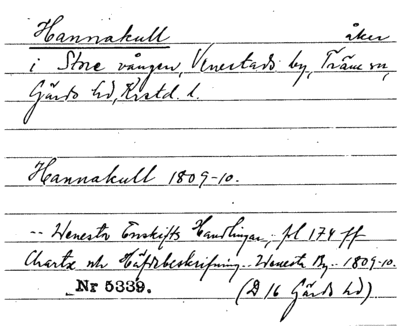 Hannakull åker
i Store vången, Venestads by, Träne sn,
Gärds hd, Krstd. l.
Hannakull 1809-10.
-- Wenesta Enskifts Handlingar, pl 174 ff
Charta och Häfdebeskrifning .. Wenesta By .. 1809-10.
Nr 5339. (D 16 Gärds hd)